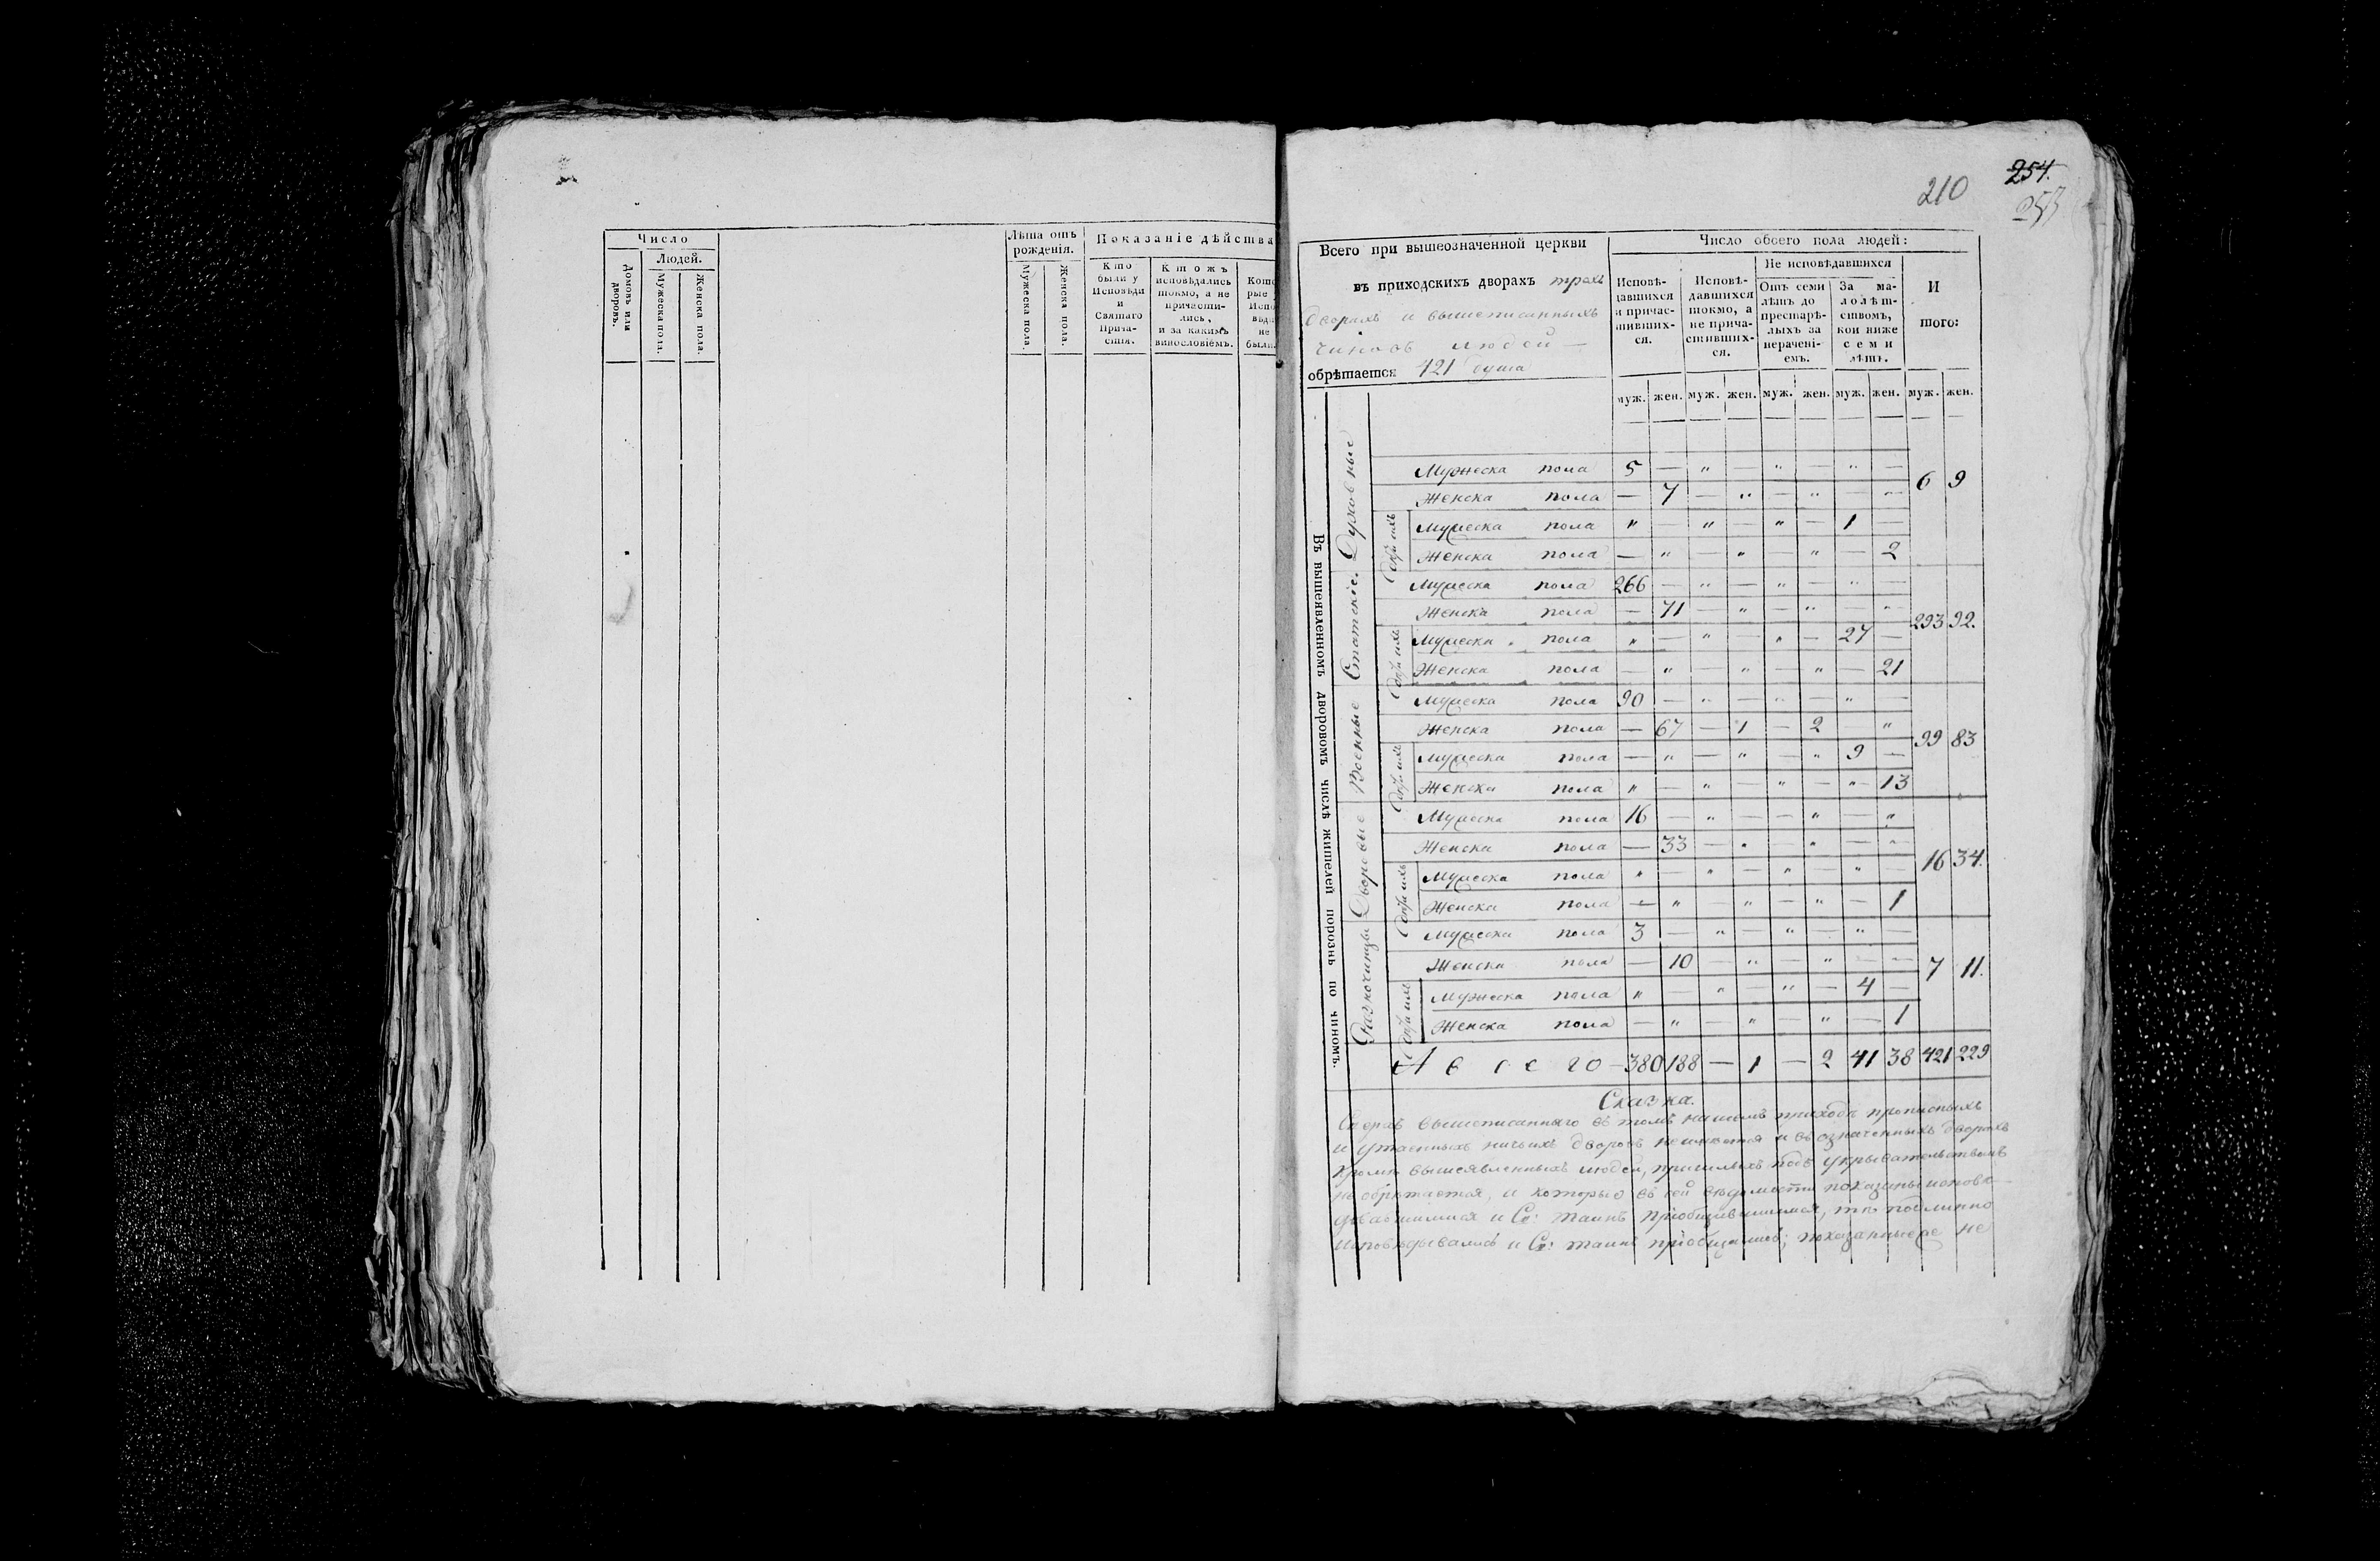 Число
Людей.
Домовъ или дворовъ.
Мужеска пола.
Женска пола.
Лѣта отъ рожденія.
Мужеска пола.
Женска пола.
Показаніе дѣйства
Кто были у Исповѣди и Святаго Прича- стія.
Ктожъ исповѣдались токмо, а не причасти- лись, и за какимъ винословіемъ.
Кото рые Испо вѣд не были.
210
254.
Всего при вышеозначенной церкви
въ приходскихъ дворахъ трехъ
дворахъ и вышеписанныхъ
чиновъ людей —
обрѣтается 421 душа
Число обоего пола людей:
Исповѣ- давшихся и причас- тивших- ся.
Исповѣ- давшихся токмо, а не прича- стивших- ся.
Не исповѣдавшихся
Отъ семи лѣтъ до престарѣ- лыхъ за нерачені- емъ.
За ма- лолѣт- ствомъ, кои ниже семи лѣтъ.
И того:
муж. жен. муж. жен. муж. жен. муж. жен. муж. жен.
Въ вышеявленномъ дворовомъ числѣ жителей порознь по чиномъ.
Духовные
Мужеска пола 5 — " — " — " —
Женска пола — 7 — " — " — "
6 9
Мужеска пола " — " — " — 1 —
Женска пола — " — " — " — 2
Статскіе.
Мужеска пола 266 — " — " — " —
Женска пола — 71 — " — " — "
293 92.
Мужеска пола " — " — " — 27 —
Женска пола — " — " — " — 21
Военные
Мужеска пола 90 — " — " — " —
Женска пола — 67 — 1 — 2 — "
99 83
Мужеска пола — " — " — " 9 —
Женска пола " — " — " — " 13
Дворовые
Мужеска пола 16 — " — — " — "
Женска пола — 33 — " — " — "
16 34.
Мужеска пола " — " — " — " —
Женска пола — " — " — " — 1
Разночинцы
Мужеска пола 3 — " — " — " —
Женска пола — 10 — " — " — "
7 11.
Мужеска пола " — " — " — 4 —
Женска пола — " — " — " — 1
А всего — 380 188 — 1 — 2 41 38 421 229
Сказка.
Сверхъ вышеписаннаго въ томъ нашемъ приходѣ прописныхъ
и утаенныхъ ничьихъ дворовъ неимѣется и въ означенныхъ дворахъ
кромѣ вышеявленныхъ людей, пришлыхъ подъ укрывательствомъ
необрѣтается, и которые въ сей вѣдомости показаны исповѣ-
давшимися и Св: таинъ пріобщившимися, тѣ подлинно
исповѣдывались и Св: таинъ пріобщались; показанные же не